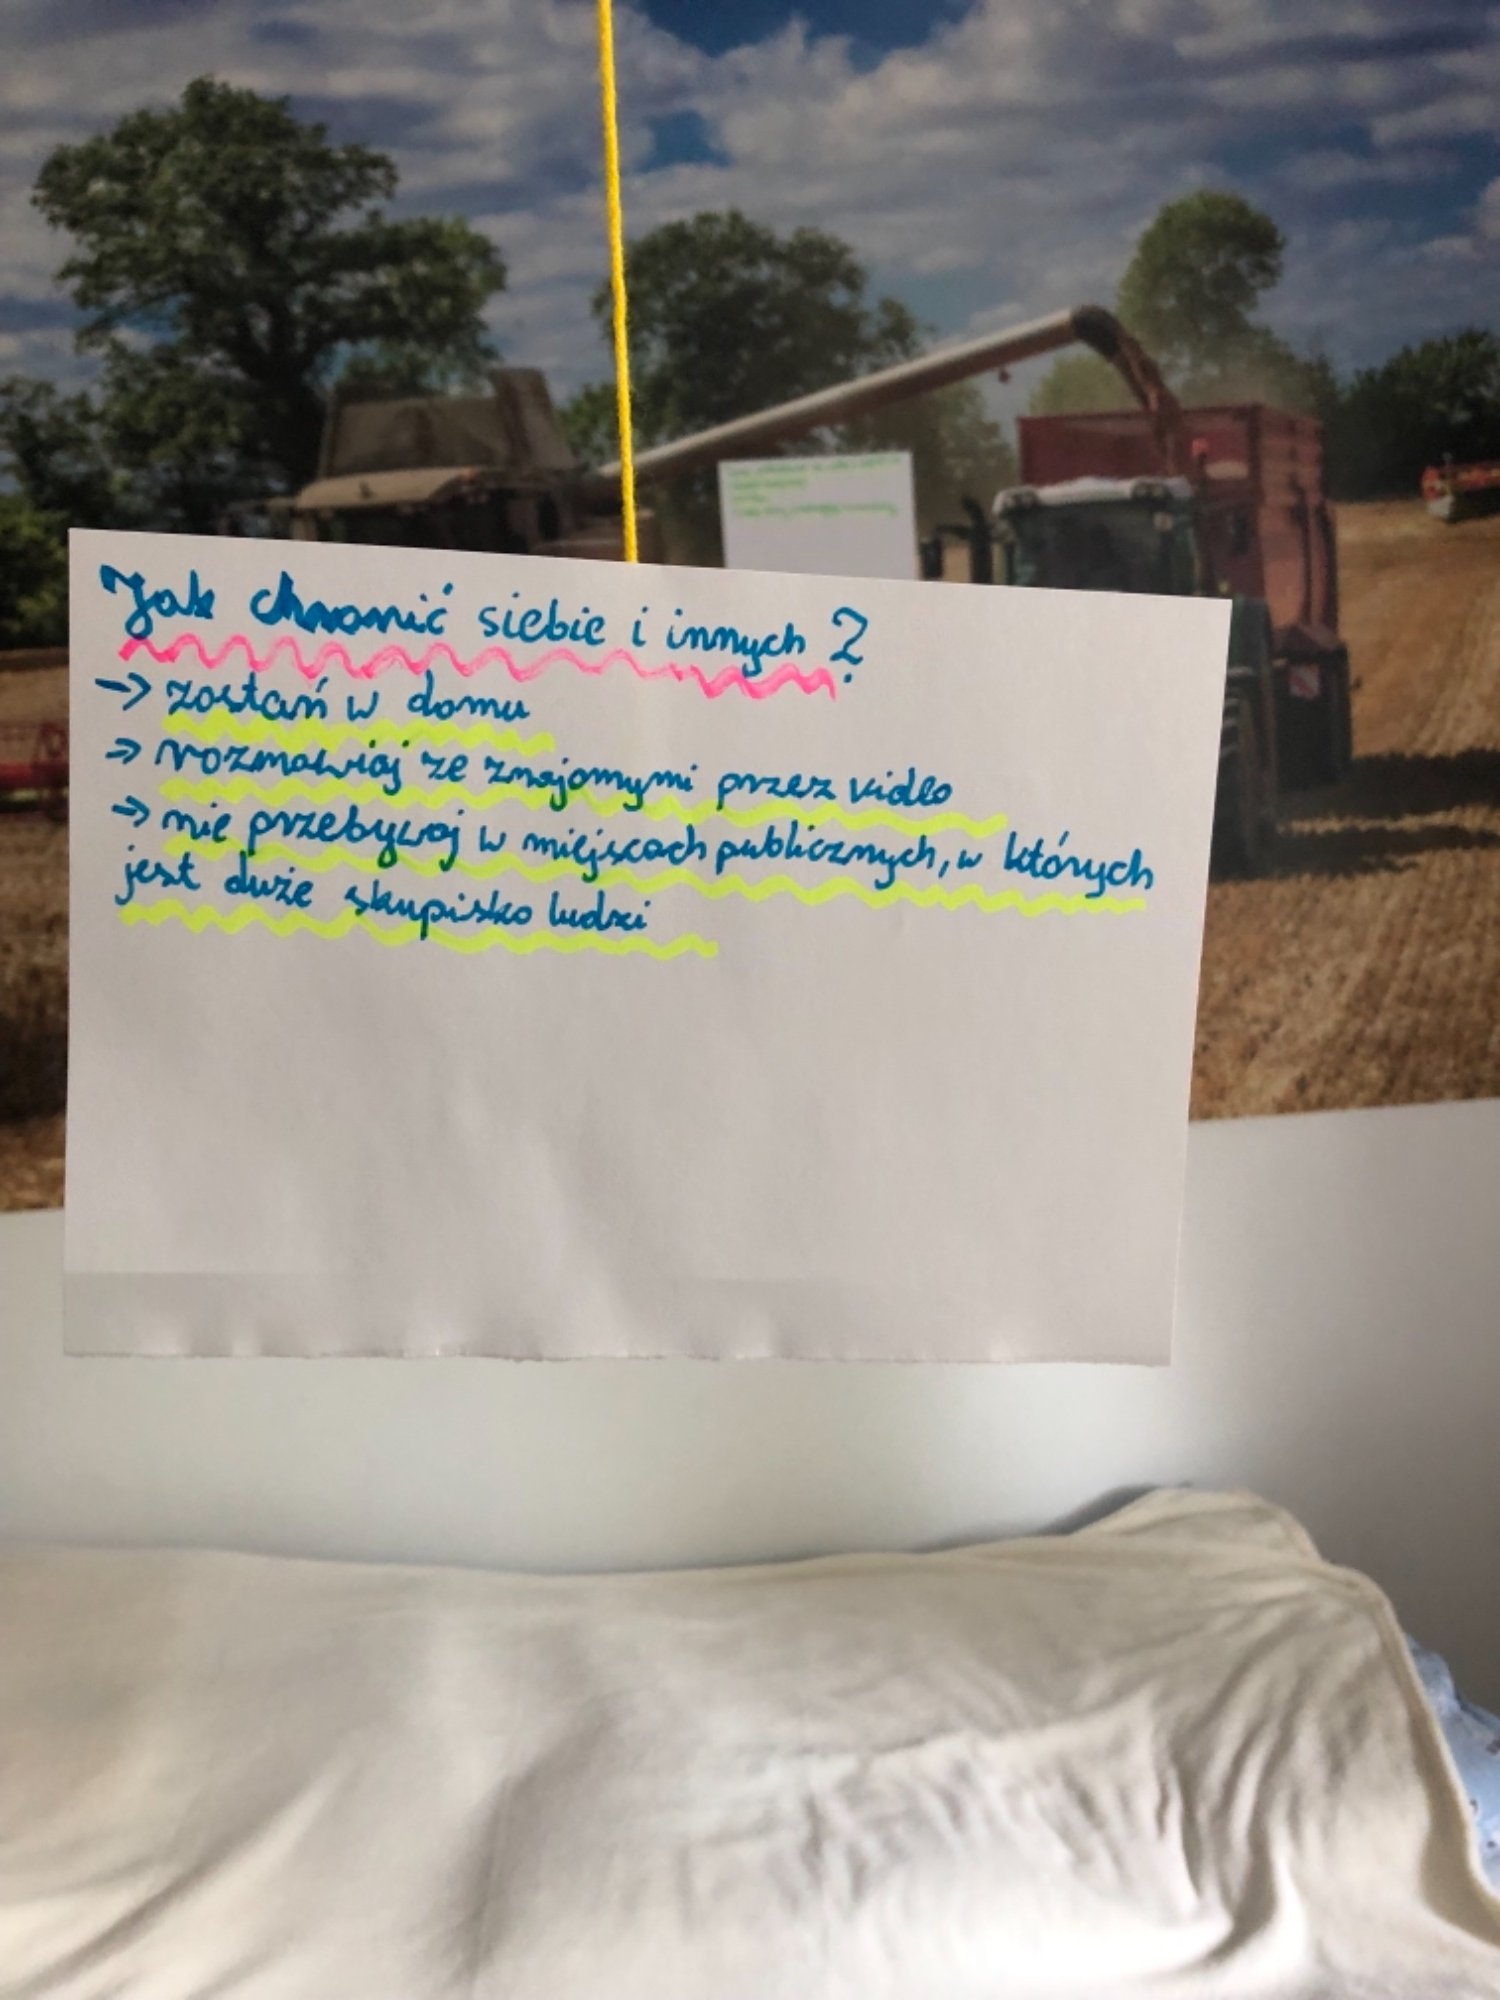 Jak chronić siebie i innych?
-> zostań w domu
-> rozmawiaj ze znajomymi przez video
-> nie przebywaj w miejscach publicznych, w których
jest duże skupisko ludzi